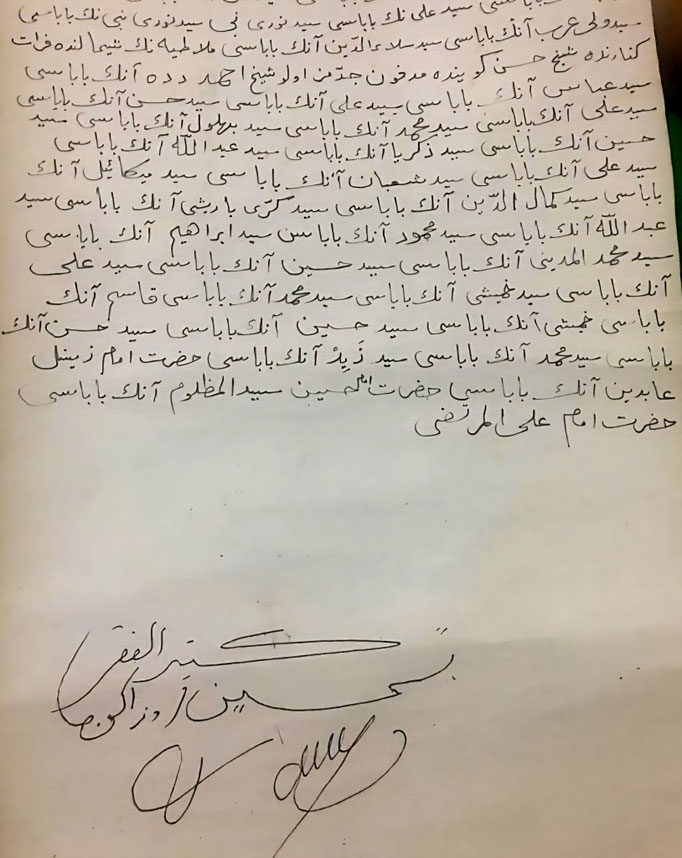 باباسی سید علی نك باباسی سید نوری نبی سید نوری نبی نك باباسی
سید ولی عرب آنك باباسی سید سلاء الدّین آنك باباسی ملاطیه نك نتیما لنده فرات
كنارنده شیخ حسن كوینده مدفون جدّ من اولو شیخ احمد دده آنك باباسی
سید عباس آنك باباسی سید علی آنك باباسی سید حسن آنك باباسی
سید علی آنك باباسی سید محمد آنك باباسی سید بهلول آنك باباسی سید
حسین آنك باباسی سید ذكریا آنك باباسی سید عبد اللّه آنك باباسی
سید علی آنك باباسی سید شعبان آنك باباسی سید میكائیل آنك
باباسی سید كمال الدّین آنك باباسی سید كرّی یا ریشی آنك باباسی سید
عبد اللّه آنك باباسی سید محمود آنك باباسی سید ابراهیم آنك باباسی
سید محمد المدینی آنك باباسی سید حسین آنك باباسی سید علی
آنك باباسی سید خمیشی آنك باباسی سید محمد آنك باباسی قاسم آنك
باباسی خمیشی آنك باباسی سید حسین آنك باباسی سید حسن آنك
باباسی سید محمد آنك باباسی سید زَیِدْ آنك باباسی حضرت امام زینل
عابدین آنك باباسی حضرت امام حسین سید المظلوم آنك باباسی
حضرت امام علی المرتضی
كتبه الفقر
تحسین